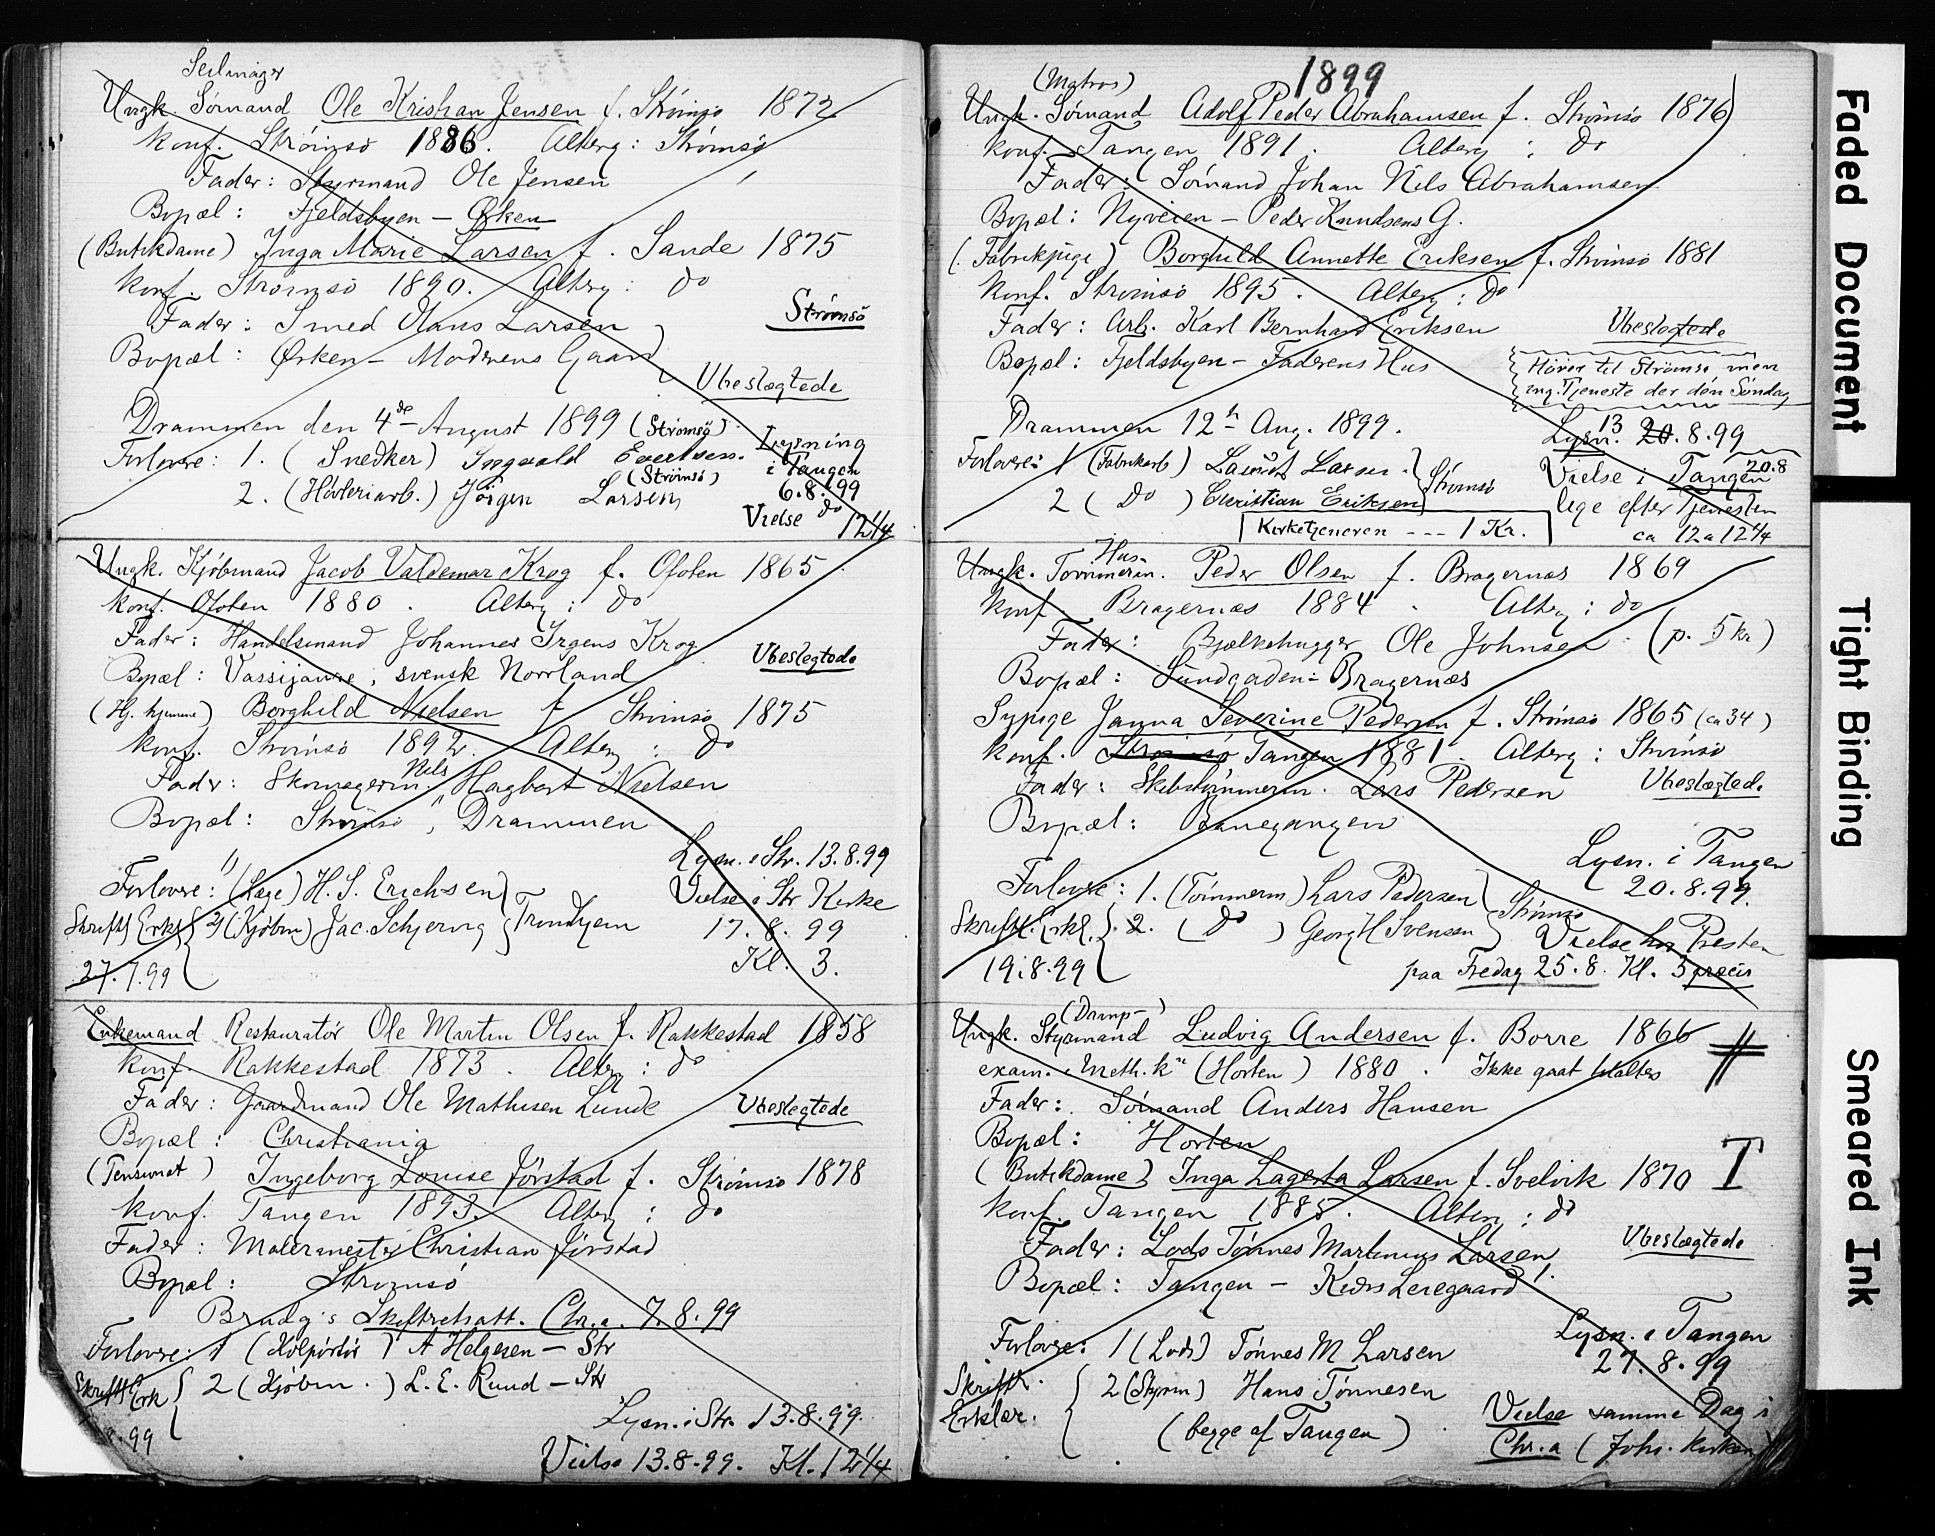 Seilmager
Ungk. Sømand Ole Kristian Jensen f. Strømsø 1872
konf. Strømsø 1886. Alterg: Strømsø
Fader: Styrmand Ole Jensen
Bopæl: Fjeldsbyen – Ørken
(Butikdame) Inga Marie Larsen f. Sande 1875
konf. Strømsø 1890. Alterg: do
Strømsø
Fader: Smed Hans Larsen
Bopæl: Ørken – Moderens Gaard
Ubeslægtede
Drammen den 4de August 1899 (Strømsø)
Forlovre: 1. (Snedker) Ingvald Evertsen.
2. (Høvleriarb.) Jørgen Larsen (Strømsø)
Lysning
i Tangen
6.8.99
Vielse do 12 1/4
Ungk. Kjøbmand Jacob Valdemar Krog f. Ofoten 1865
konf. Ofoten 1880. Alterg: do
Fader: Handelsmand Johannes Irgens Krog
Ubeslegtede
Bopæl: Vassijaure, svensk Norrland
(Hj. hjemme) Borghild Nielsen f. Strømsø 1875
konf. Strømsø 1892. Alterg: do
Fader: Skomagerm. Nils Hagbart Nielsen
Bopæl: Strømsø, Drammen
Lysn. i Str. 13.8.99
Forlovre: 1) (Læge) H. S. Erichsen
Vielse i Str Kirke
Skriftl Erkl 2) (Kjøbm) Jac. Schjervig Trondhjem
17.8.99
27.7.99
Kl. 3.
Enkemand Restauratør Ole Martin Olsen f. Rakkestad 1858
konf. Rakkestad 1873. Alterg: do
Fader: Gaardmand Ole Mathisen Lunde
Ubeslegtede
Bopæl: Christiania
(Pensionat) Ingeborg Louise Jørstad f. Strømsø 1878
konf. Tangen 1893. Alterg: do
Fader: Malermester Christian Jørstad
Bopæl: Strømsø
Brudg's Skifteretsatt. Chr.a. 7.8.99
Forlovre: 1 (Kolportør) A Helgesen – Str
Skriftl Erk 2 (Kjøbm.) L. E. Ruud – Str
8.99
Lysn. i Str. 13.8.99.
Vielse 13.8.99. Kl. 12 1/4
1899
(Matros)
Ungk. Sømand Adolf Peder Abrahamsen f. Strømsø 1876
konf. Tangen 1891. Alterg: do
Fader: Sømand Johan Nils Abrahamsen
Bopæl: Nyveien – Peder Knudsens G.
(Fabrikpige) Borghild Annette Eriksen f. Strømsø 1881
konf. Strømsø 1895. Alterg: do
Fader: Arb. Karl Bernhard Eriksen
Ubeslegtede
Bopæl: Fjeldsbyen – Faderens Hus
Hører til Strømsø men
ing. Tjeneste der den Søndag
Drammen 12te Aug. 1899.
Lysn. 13 20.8.99
Forlovre: 1 (Fabrikarb) Laurits Larsen.
2 (Do) Christian Eriksen
Strømsø
Vielse i Tangen 20.8
lige efter Tjenesten
ca 12 a 12 1/4
Kirketjeneren --- 1 Kr.
Hus-
Ungk. Tømmerm. Peder Olsen f. Bragernæs 1869
konf. Bragernæs 1884. Alterg: do
Fader: Bjelkehugger Ole Johnsen. (p. 5 kr)
Bopæl: Sundgaden – Bragernæs
Sypige Janna Severine Pedersen f. Strømsø 1865 (ca 34)
konf. Strømsø Tangen 1881. Alterg: Strømsø
Fader: Skibstømmerm. Lars Pedersen
Ubeslægtede
Bopæl: Banegangen
Lysn. i Tangen
20.8.99.
Forlovre: 1. (Tømmerm) Lars Pedersen
Skriftl. Erkl. 2. (do) Georg H Svensen
Strømsø
19.8.99
Vielse hos Presten
paa Fredag 25.8. Kl. 3 præcis
(Damp-)
Ungk. Styrmand Ludvig Andersen f. Borre 1866
exam. i Meth. kn (Horten) 1880. Ikke gaat t. alters
Fader: Sømand Anders Hansen
Bopæl: Horten
(Butikdame) Inga Lagerta Larsen f. Svelvik 1870 T
konf. Tangen 1885. Alterg: do
Fader: Lods Tønnes Martinius Larsen
Ubeslegtede
Bopæl: Tangen –
Lysn. i Tangen
27.8.99
Forlovre: 1 (Lods) Tønnes M Larsen
Skriftl. Erklær. 2 (Styrm) Hans Tønnesen
(begge af Tangen)
Vielse samme Dag i
Chr.a (Johs. Kirken)
Faded Document
Tight Binding
Smeared Ink